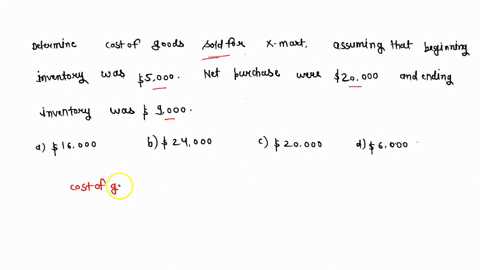 Determine cost of goods sold for X-mart, assuming that beginning
inventory was $5,000. Net purchase were $20,000 and ending
inventory was $9,000.
a) $16,000 b) $24,000 c) $20.000 d) $6,000
cost of g